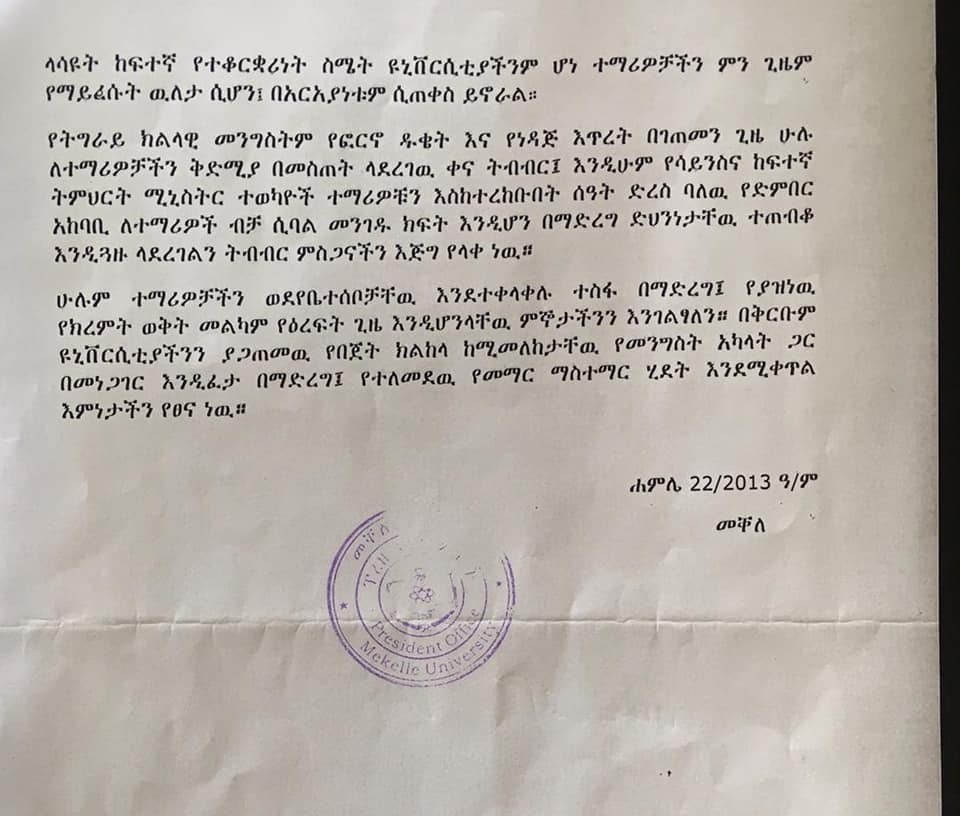 ላሳዩት ከፍተኛ የተቆርቋሪነት ስሜት ዩኒቨርሲቲያችንም ሆነ ተማሪዎቻችን ምን ጊዜም
የማይፈሱት ዉለታ ሲሆን፤ በአርአያነቱም ሲጠቀስ ይኖራል።
የትግራይ ክልላዊ መንግስትም የፎርኖ ዱቄት እና የነዳጅ እጥረት በገጠመን ጊዜ ሁሉ
ለተማሪዎቻችን ቅድሚያ በመስጠት ላደረገዉ ቀና ትብብር፤ እንዲሁም የሳይንስና ከፍተኛ
ትምህርት ሚኒስትር ተወካዮች ተማሪዎቹን እስከተረከቡበት ሰዓት ድረስ ባለዉ የድምበር
አከባቢ ለተማሪዎች ብቻ ሲባል መንገዱ ክፍት እንዲሆን በማድረግ ድህንነታቸዉ ተጠብቆ
እንዲጓዙ ላደረገልን ትብብር ምስጋናችን እጅግ የላቀ ነዉ።
ሁሉም ተማሪዎቻችን ወደየቤተሰቦቻቸዉ እንደተቀላቀሉ ተስፋ በማድረግ፤ የያዝነዉ
የክረምት ወቅት መልካም የዕረፍት ጊዜ እንዲሆንላቸዉ ምኞታችንን እንገልፃለን። በቅርቡም
ዩኒቨርሲቲያችንን ያጋጠመዉ የበጀት ክልከላ ከሚመለከታቸዉ የመንግስት አካላት ጋር
በመነጋገር እንዲፈታ በማድረግ፤ የተለመደዉ የመማር ማስተማር ሂደት እንደሚቀጥል
እምነታችን የፀና ነዉ።
ሐምሌ 22/2013 ዓ/ም
መቐለ
መቐለ
ፕረዚ
President Office
Mekelle University